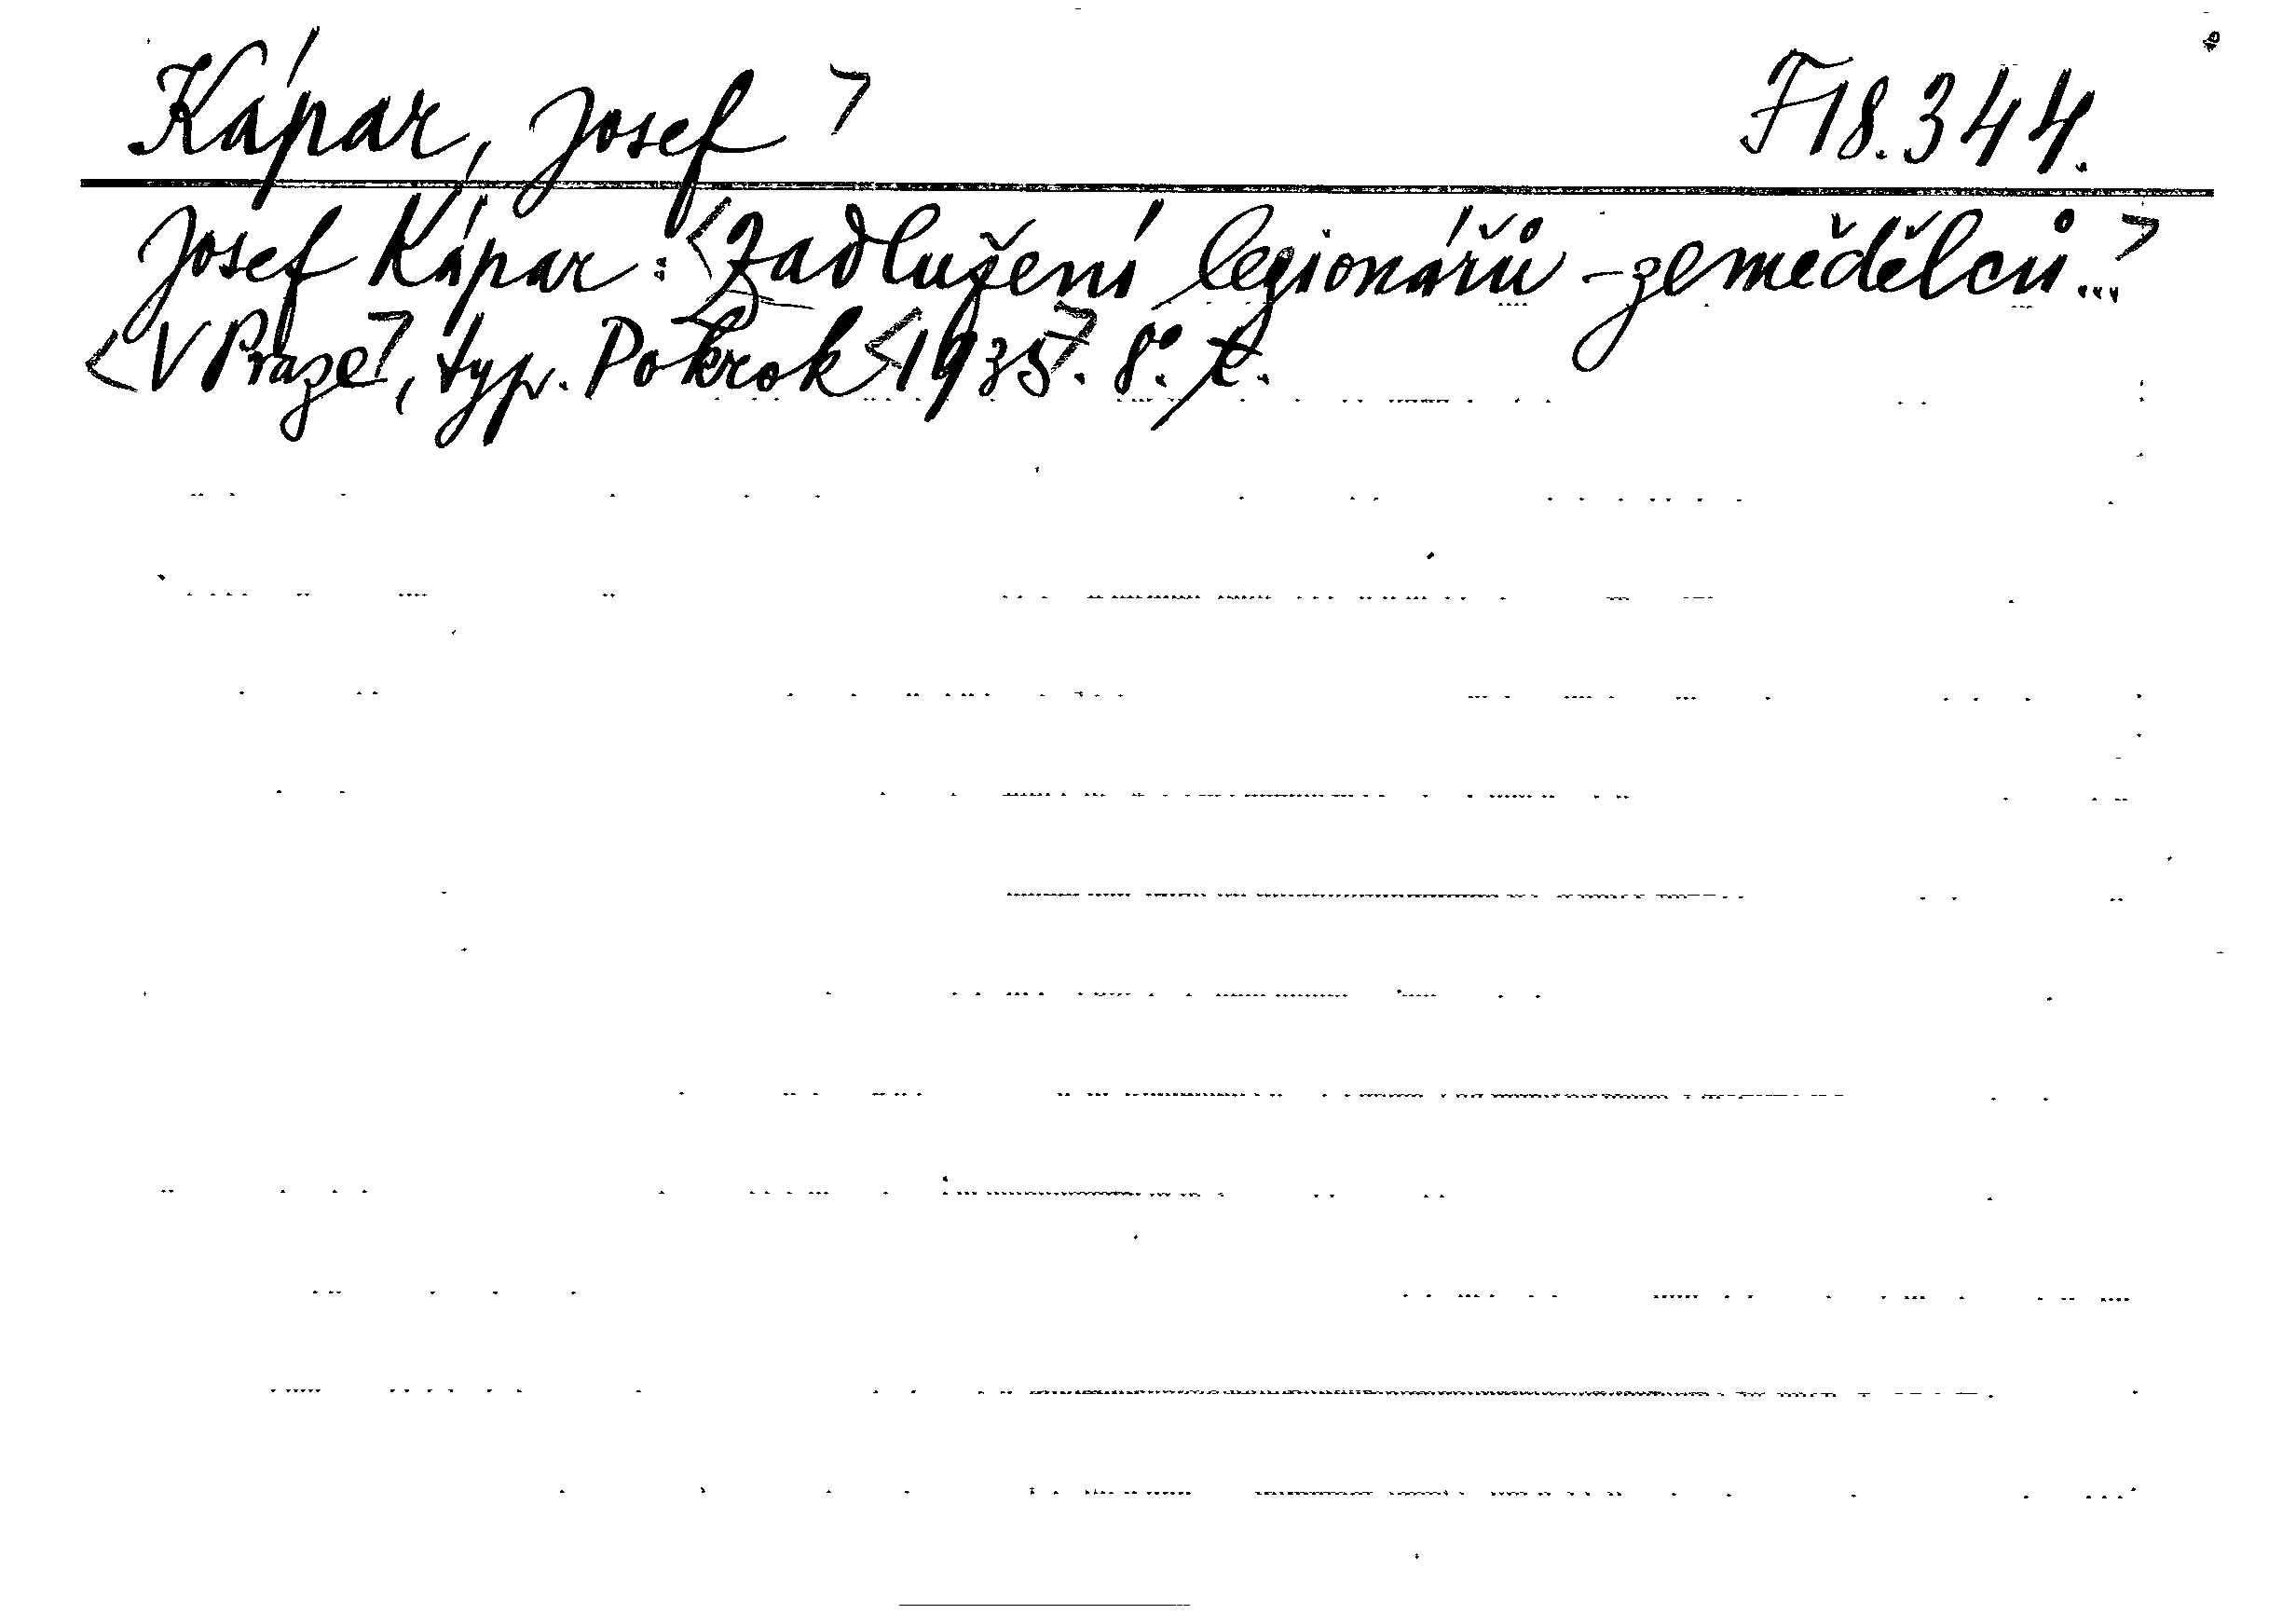 Kápar, Josef > F 18.344.
Josef Kápar: <Zadlužení legionářů - zemědělců...>
<V Praze>, typ. Pokrok <1935>. 8°. t.